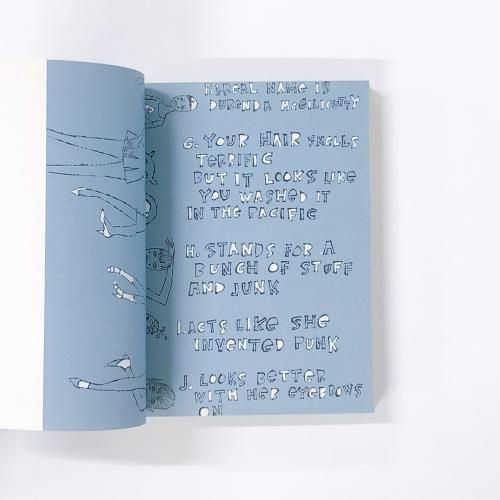 REAL NAME IS
DURENDA McGILICUTTY
G. YOUR HAIR SMELLS
TERRIFIC
BUT IT LOOKS LIKE
YOU WASHED IT
IN THE PACIFIC
H. STANDS FOR A
BUNCH OF STUFF
AND JUNK
I. ACTS LIKE SHE
INVENTED PUNK
J. LOOKS BETTER
WITH HER EYEBROWS
ON